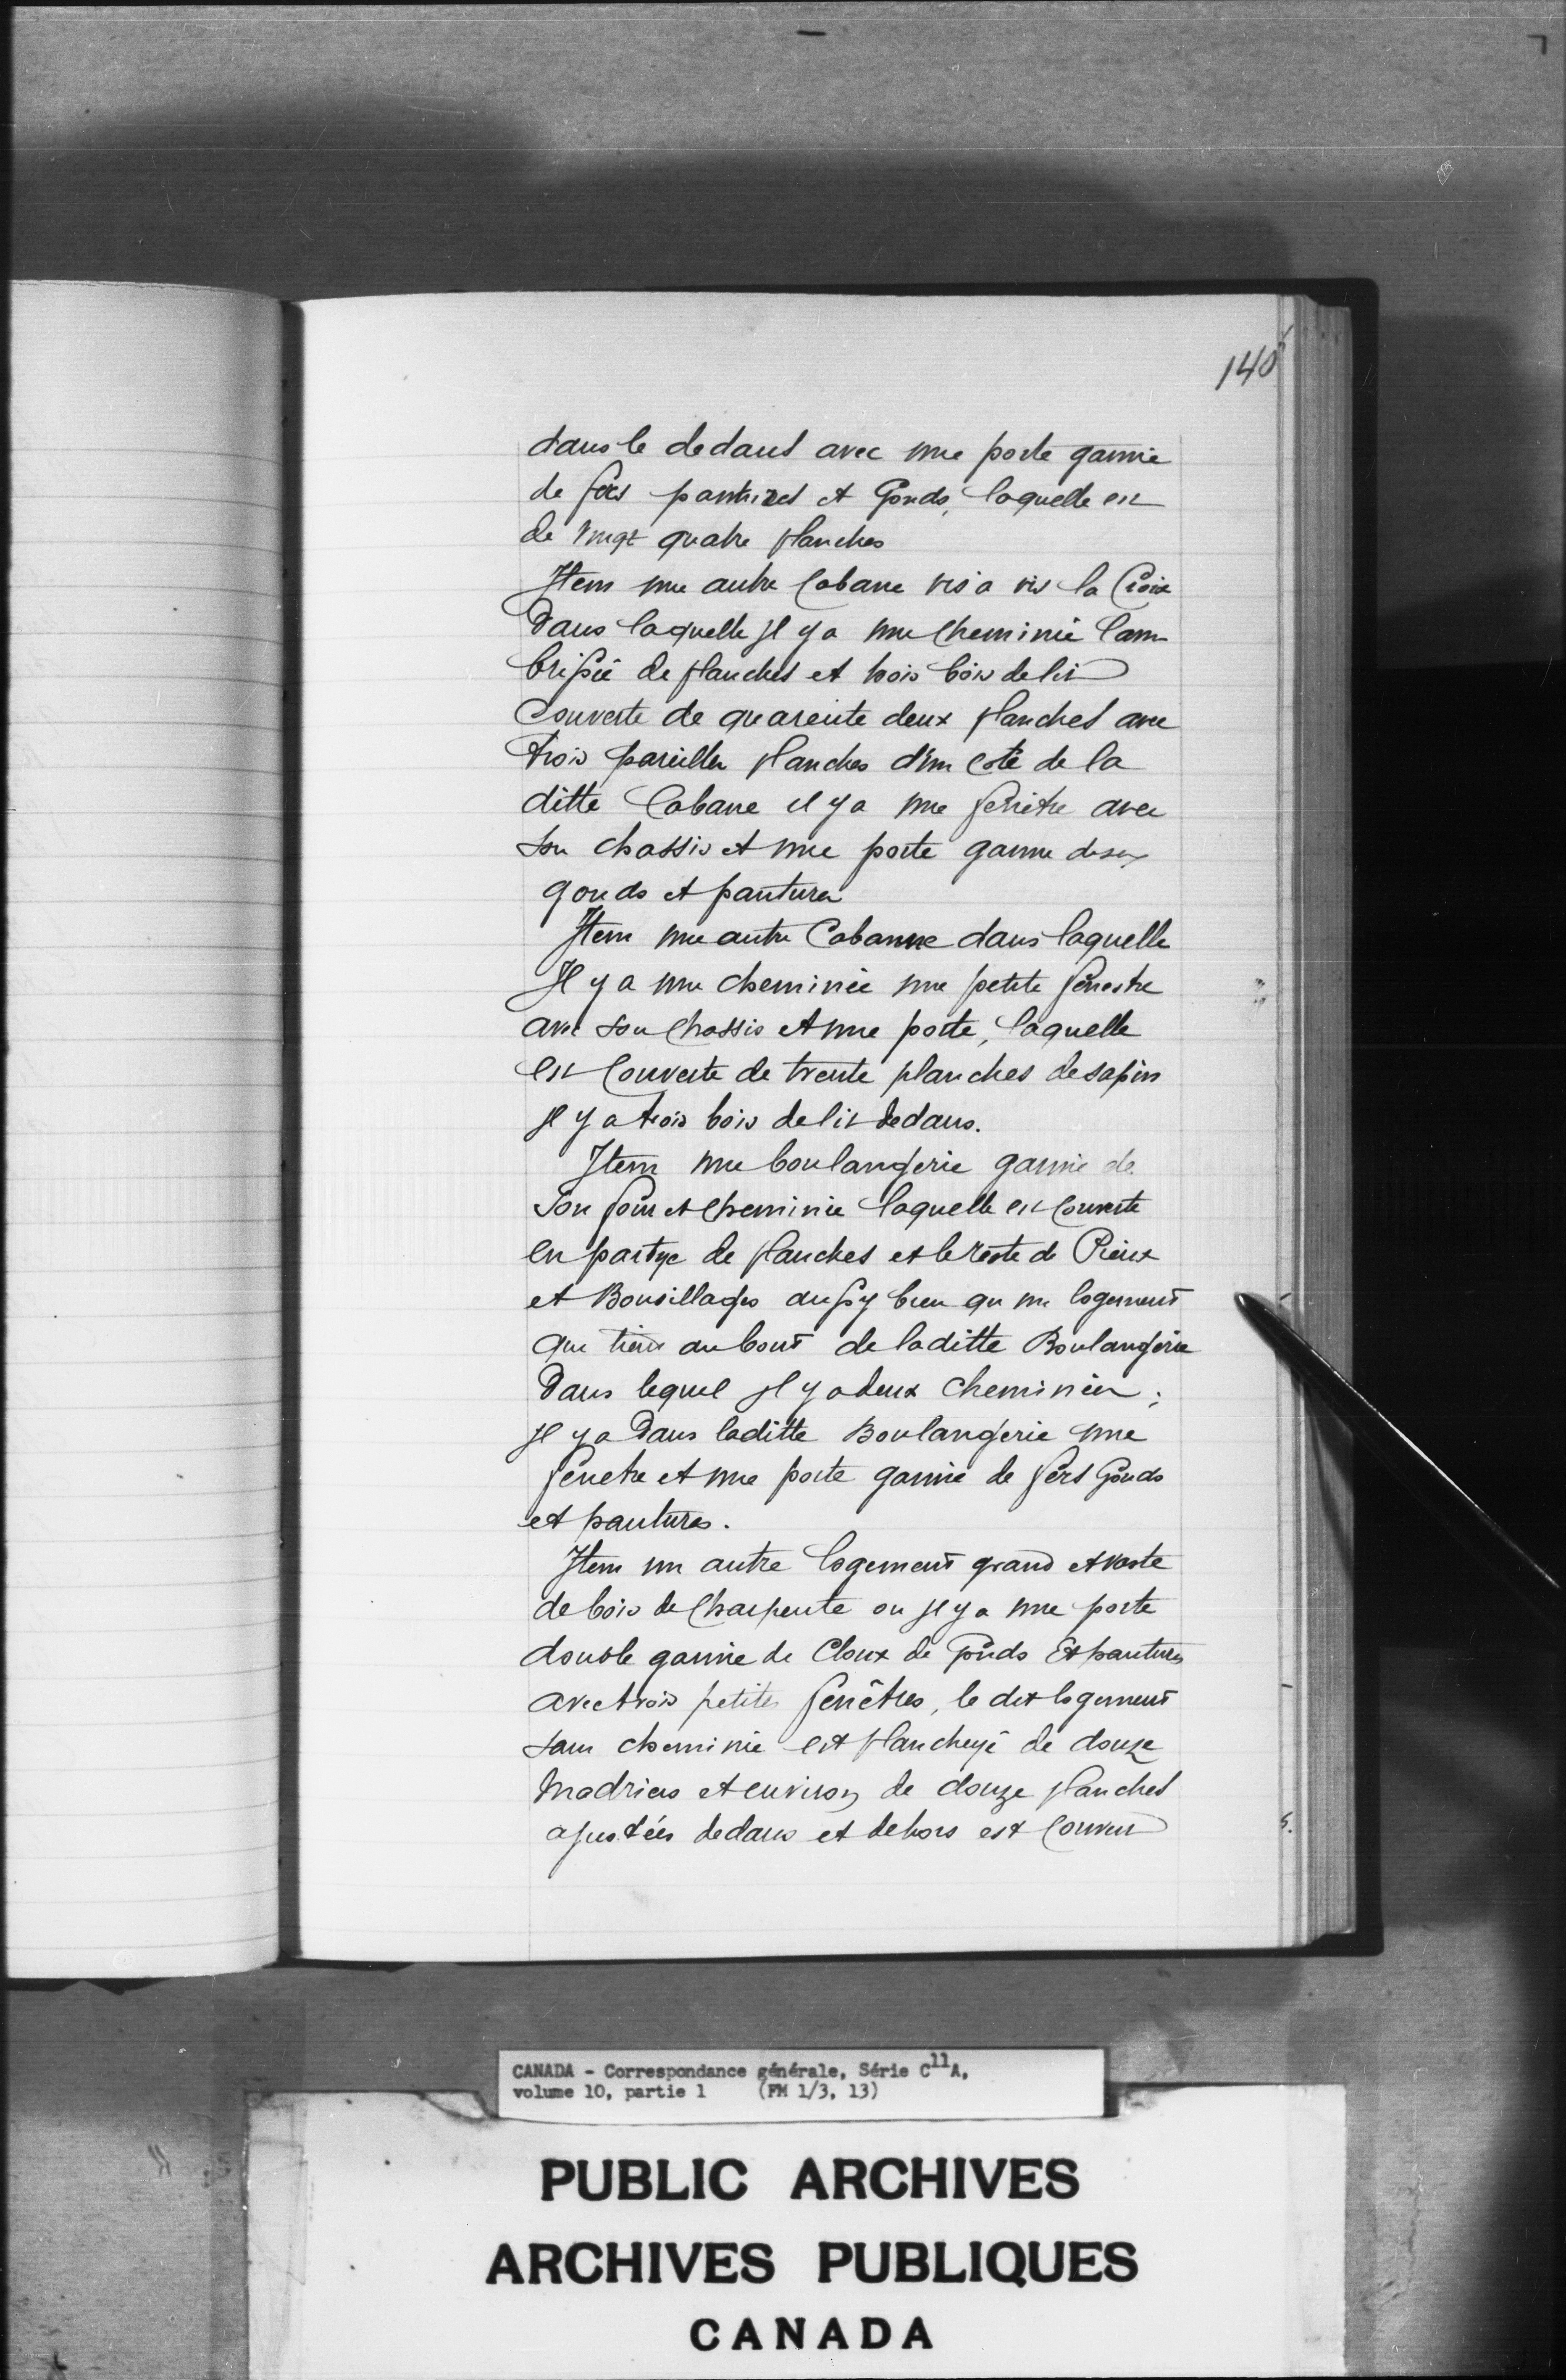 140
dans le dedans avec une porte garnie
de fers pantures et Gonds, laquelle est
de vingt quatre planches
Item une autre Cabane vis a vis la Croix
Dans laquelle Il y a une cheminée lam
brissée de planches et trois bois de lit
Couverte de quarente deux planches avec
trois pareilles planches d'un coté de la
ditte Cabane il y a une fenêtre avec
son chassis et une porte garnie de ses
gonds et pantures
Item une autre Cabanne dans laquelle
Il y a une cheminée une petite fenestre
avec son chassis et une porte, laquelle
est Couverte de trente planches de sapin
Il y a trois bois de lit dedans.
Item une boulangerie garnie de
son four et cheminée laquelle est couverte
en partye de planches et le reste de Pieux
et Bousillages aussy bien qu un logement
qui tient au bout de laditte Boulangerie
Dans lequel Il y a deux cheminées;
Il y a Dans laditte Boulangerie une
fenetre et une porte garnie de fers Gonds
et pantures.
Item un autre logement grand et vaste
de bois de charpente ou Il y a une porte
double garnie de Cloux de Gonds Et pantures
avec trois petites fenêtres, le dit logement
sans cheminée est plancheyé de douze
Madriers et environ de douze planches
ajustées dedans et dehors est couvert
CANADA - Correspondance générale, Série C11A,
volume 10, partie 1 (FM 1/3, 13)
PUBLIC ARCHIVES
ARCHIVES PUBLIQUES
CANADA